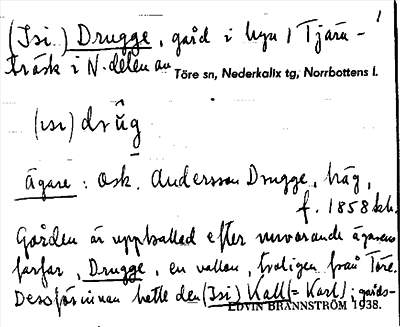 1
(Isi.) Drugge, gård i byn Tjärn-
träsk i N. delen av Töre sn, Nederkalix tg, Norrbottens l.
(ısı) drûg
Ägare: Osk. Andersson Drugge, häg,
f. 1858 ibb.
Gården är uppkallad efter nuvarande ägarens
farfar, Drugge, en vallon, troligen från Töre.
Dessförinnan hette den (Isi) Kall (= Karl); gårds-
EDVIN BRÄNNSTRÖM 1938.